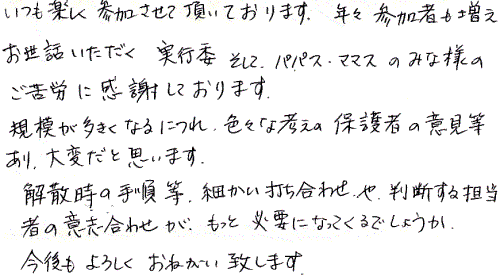 いつも楽しく参加させて頂いております。年々参加者も増え
お世話いただく実行委そして、パパス・ママスのみな様の
ご苦労に感謝しております。
規模が多きくなるにつれ、色々な考えの保護者の意見等
あり、大変だと思います。
解散時の手順等、細かい打ち合わせや、判断する担当
者の意志合わせが、もっと必要になってくるでしょうか。
今後もよろしくおねがい致します。